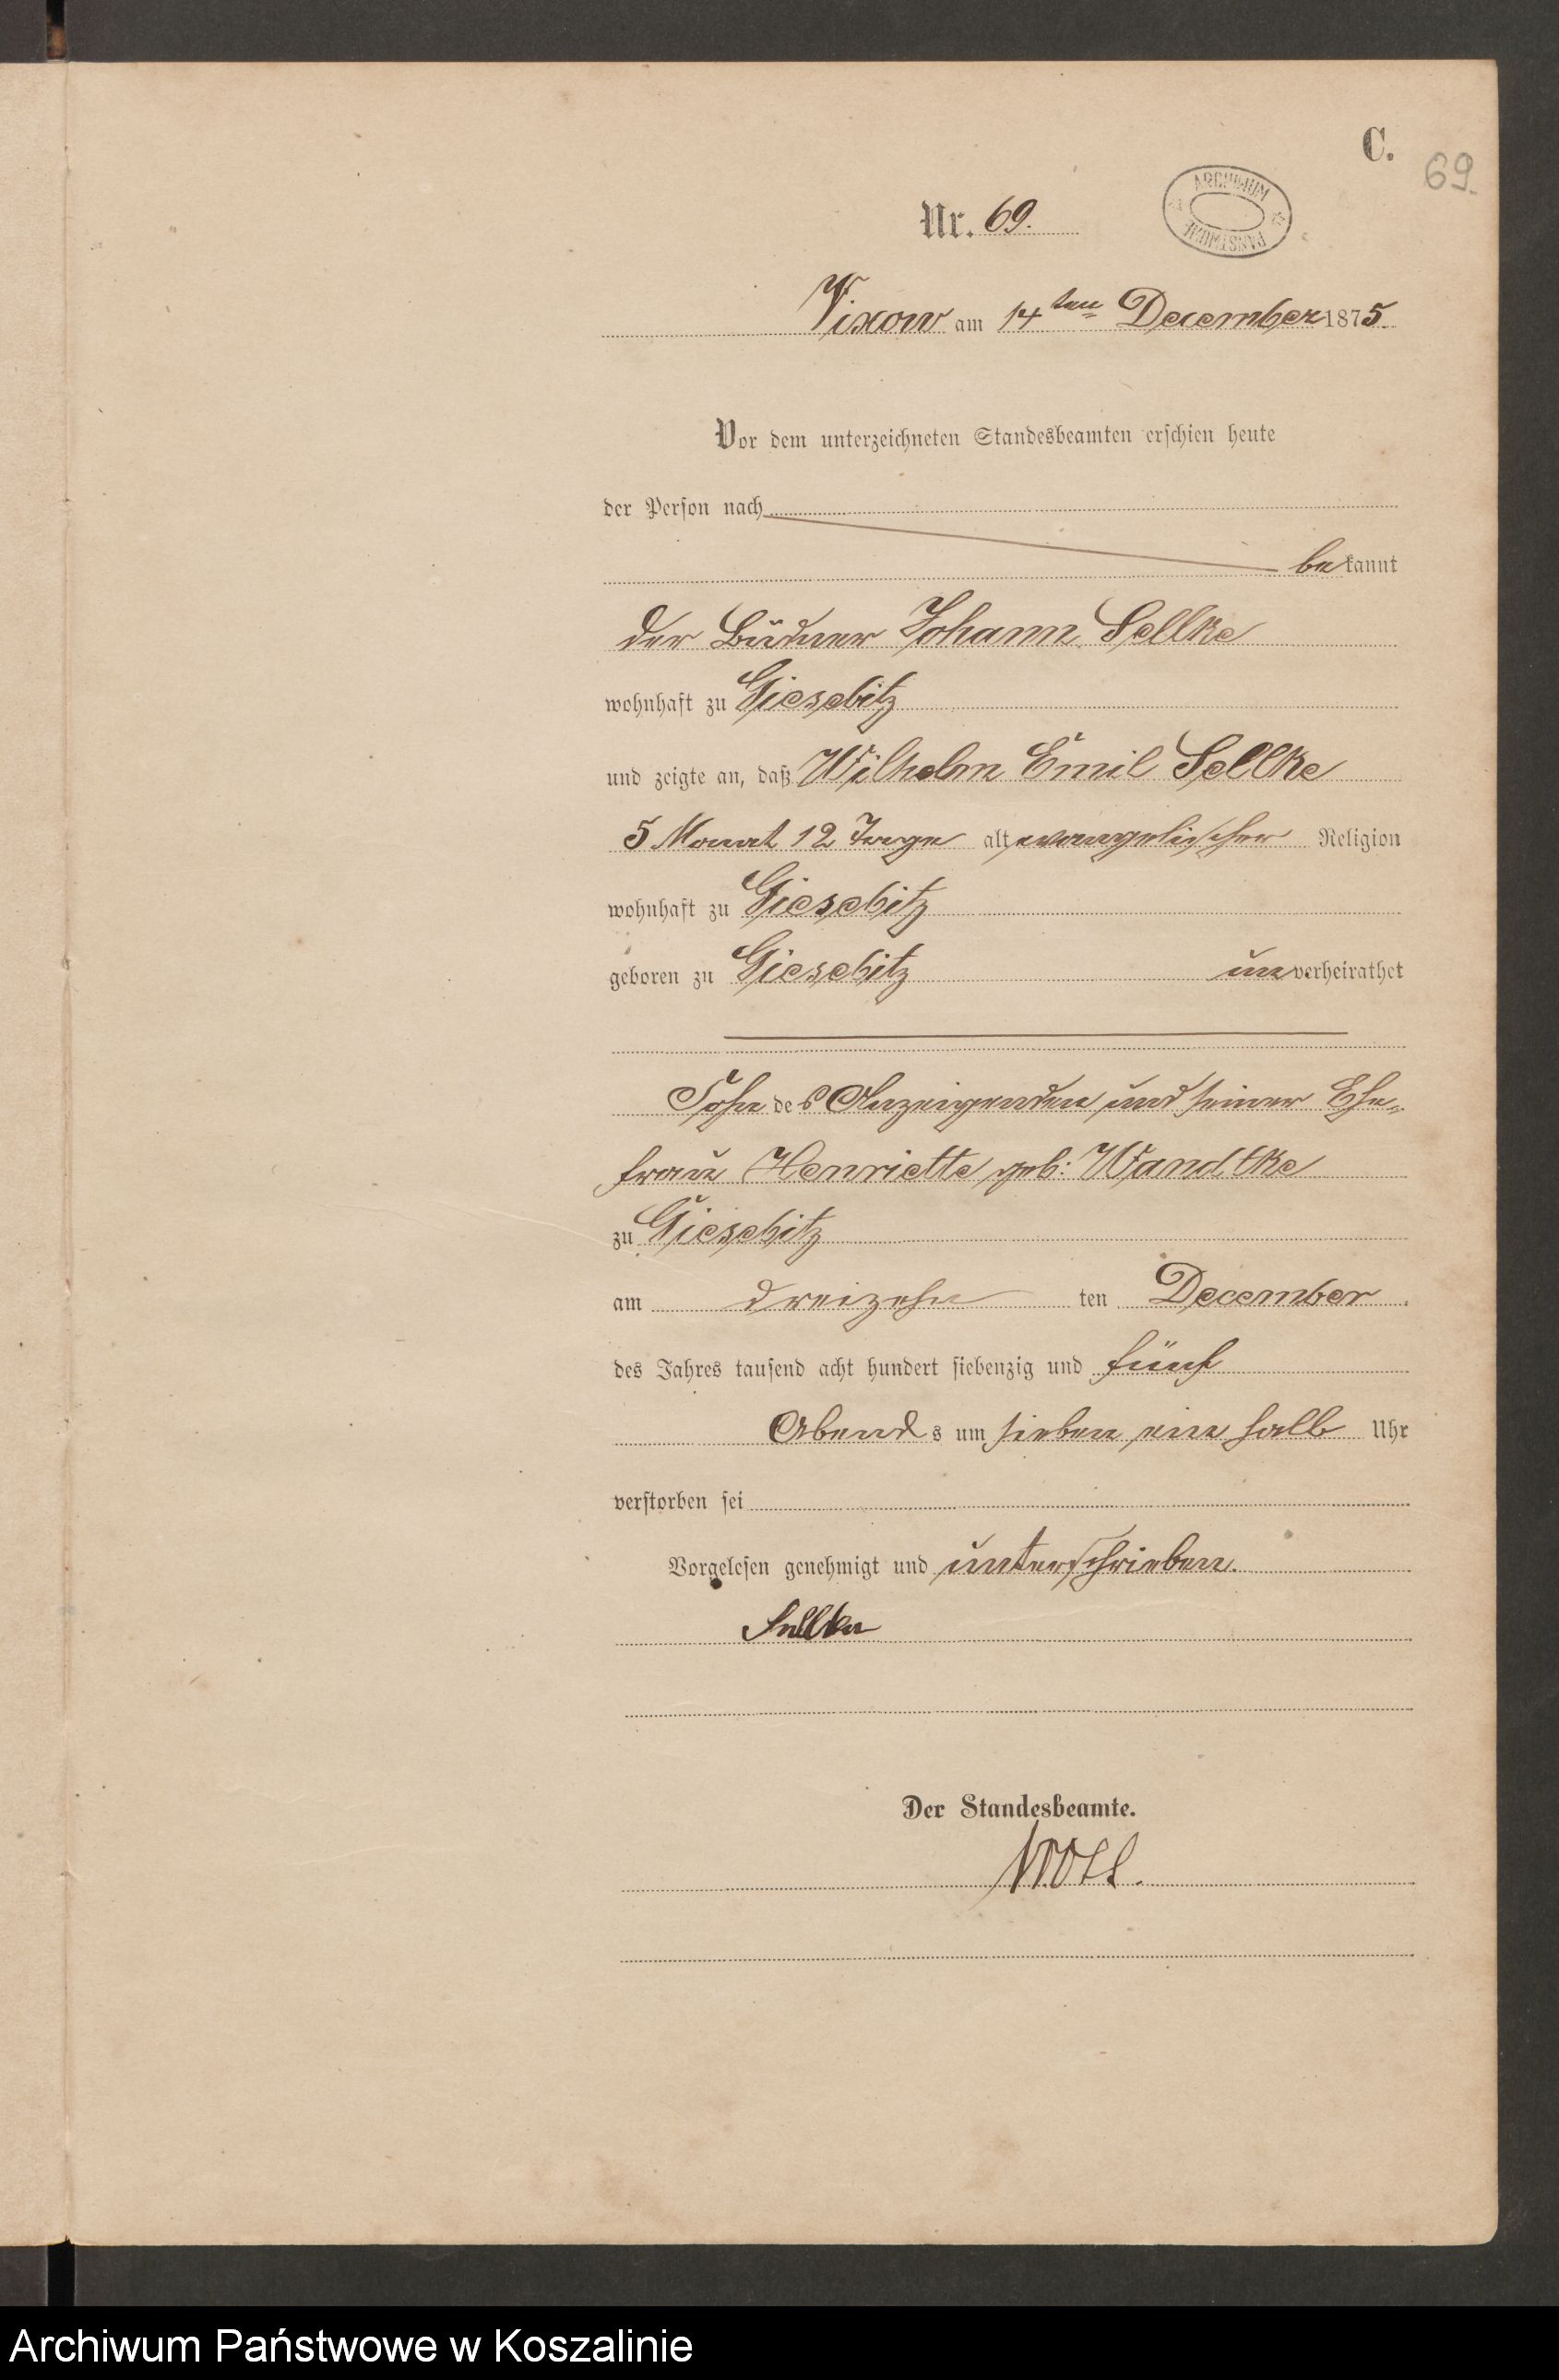 C.
69.
Nr. 69.
ARCHIWUM PAŃSTWOWE
Vixow am 14ten December 1875.
Vor dem unterzeichneten Standesbeamten erschien heute
der Person nach
bekannt
der Büdner Johann Sellke
wohnhaft zu Giesebitz
und zeigte an, daß Wilhelm Emil Sellke
5 Monat 12 Tage alt, evangelischer Religion
wohnhaft zu Giesebitz
geboren zu Giesebitz unverheirathet
Sohn des Anzeigenden und seiner Ehe-
frau Henriette geb: Wandtke
zu Giesebitz
am dreizehn ten December
des Jahres tausend acht hundert siebenzig und fünf
Abends um sieben ein halb Uhr
verstorben sei
Vorgelesen genehmigt und unterschrieben.
Sellke
Der Standesbeamte.
Archiwum Państwowe w Koszalinie